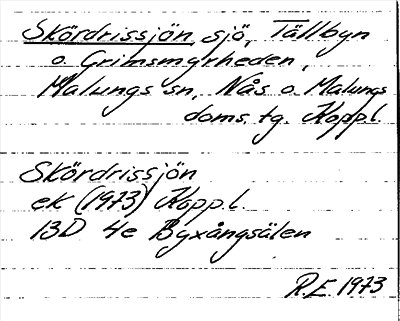 Skördrissjön, sjö, Tällbyn
o. Grimsmyrheden,
Malungs sn, Nås o. Malungs
doms. tg. Kopp.l.
Skördrissjön
ek (1973) Kopp.l.
13D 4e Byxångsälen
R.E. 1973